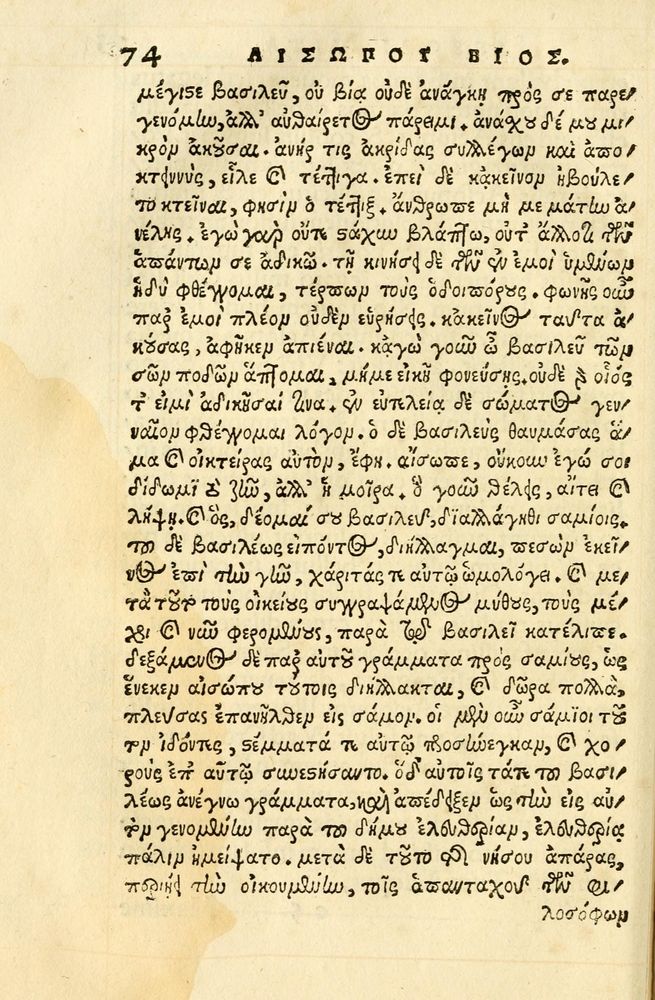 74 ΑΙΣΩΠΟΥ ΒΙΟΣ.
μέγιστε βασιλεῦ, οὐ βίᾳ οὐδὲ ἀνάγκῃ πρός σε παρε-
γενόμην, ἀλλ' αὐθαίρετος πάρειμι. ἀνάχου δέ μου μι-
κρὸν ἀκοῦσαι. ἀνήρ τις ἀκρίδας συλλέγων καὶ ἀπο-
κτιννύς, εἷλε καὶ τέττιγα. ἐπεὶ δὲ κἀκεῖνον ἠβούλε-
το κτεῖναι, φησὶν ὁ τέττιξ. ἄνθρωπε μή με μάτην ἀ-
νέλῃς. ἐγὼ γὰρ οὔτε στάχυν βλάπτω, οὔτ' ἄλλο τι τῶν
ἁπάντων σε ἀδικῶ. τῇ κινήσει δὲ τῶν ἐν ἐμοὶ ὑμένων
ἡδὺ φθέγγομαι, τέρπων τοὺς ὁδοιπόρους. φωνῆς οὖν
παρ' ἐμοὶ πλέον οὐδὲν εὑρήσεις. κἀκεῖνος ταῦτα ἀ-
κούσας, ἀφῆκεν ἀπιέναι. κἀγὼ γοῦν ὦ βασιλεῦ τῶν
σῶν ποδῶν ἅπτομαι, μή με εἰκῇ φονεύσῃς. οὐδὲ γὰρ οἷός
τ' εἰμὶ ἀδικῆσαί τινα. ἐν εὐτελείᾳ δὲ σώματος γεν-
ναῖον φθέγγομαι λόγον. ὁ δὲ βασιλεὺς θαυμάσας ἅ-
μα καὶ οἰκτείρας αὐτὸν, ἔφη. αἴσωπε, οὐκ ἐγώ σοι
δίδωμι τὸ ζῆν, ἀλλ' ἡ μοῖρα. ὃ γοῦν θέλεις, αἴτει καὶ
λήψῃ. καὶ ὃς, δέομαί σου βασιλεῦ, διαλλάγηθι σαμίοις.
τοῦ δὲ βασιλέως εἰπόντος, διήλλαγμαι, πεσὼν ἐκεῖ-
νος ἐπὶ τὴν γῆν, χάριτάς τε αὐτῷ ὡμολόγει. καὶ με-
τὰ τοῦτο τοὺς οἰκείους συγγραψάμενος μύθους, τοὺς μέ-
χρι καὶ νῦν φερομένους, παρὰ τῷ βασιλεῖ κατέλιπε.
δεξάμενος δὲ παρ' αὐτοῦ γράμματα πρὸς σαμίους, ὡς
ἕνεκεν αἰσώπου τούτοις διήλλακται, καὶ δῶρα πολλὰ,
πλεύσας ἐπανῆλθεν εἰς σάμον. οἱ μὲν οὖν σάμιοι τοῦ-
τον ἰδόντες, στέμματά τε αὐτῷ προσήνεγκαν, καὶ χο-
ροὺς ἐπ' αὐτῷ συνεστήσαντο. ὁ δ' αὐτοῖς τά τε τοῦ βασι-
λέως ἀνέγνω γράμματα, καὶ ἀπέδειξεν ὡς τὴν εἰς αὐ-
τὸν γενομένην παρὰ τοῦ δήμου ἐλευθερίαν, ἐλευθερίᾳ
πάλιν ἠμείψατο. μετὰ δὲ τοῦτο τῆς νήσου ἀπάρας,
περιῄει τὴν οἰκουμένην, τοῖς ἁπανταχοῦ τῶν φι-
λοσόφων